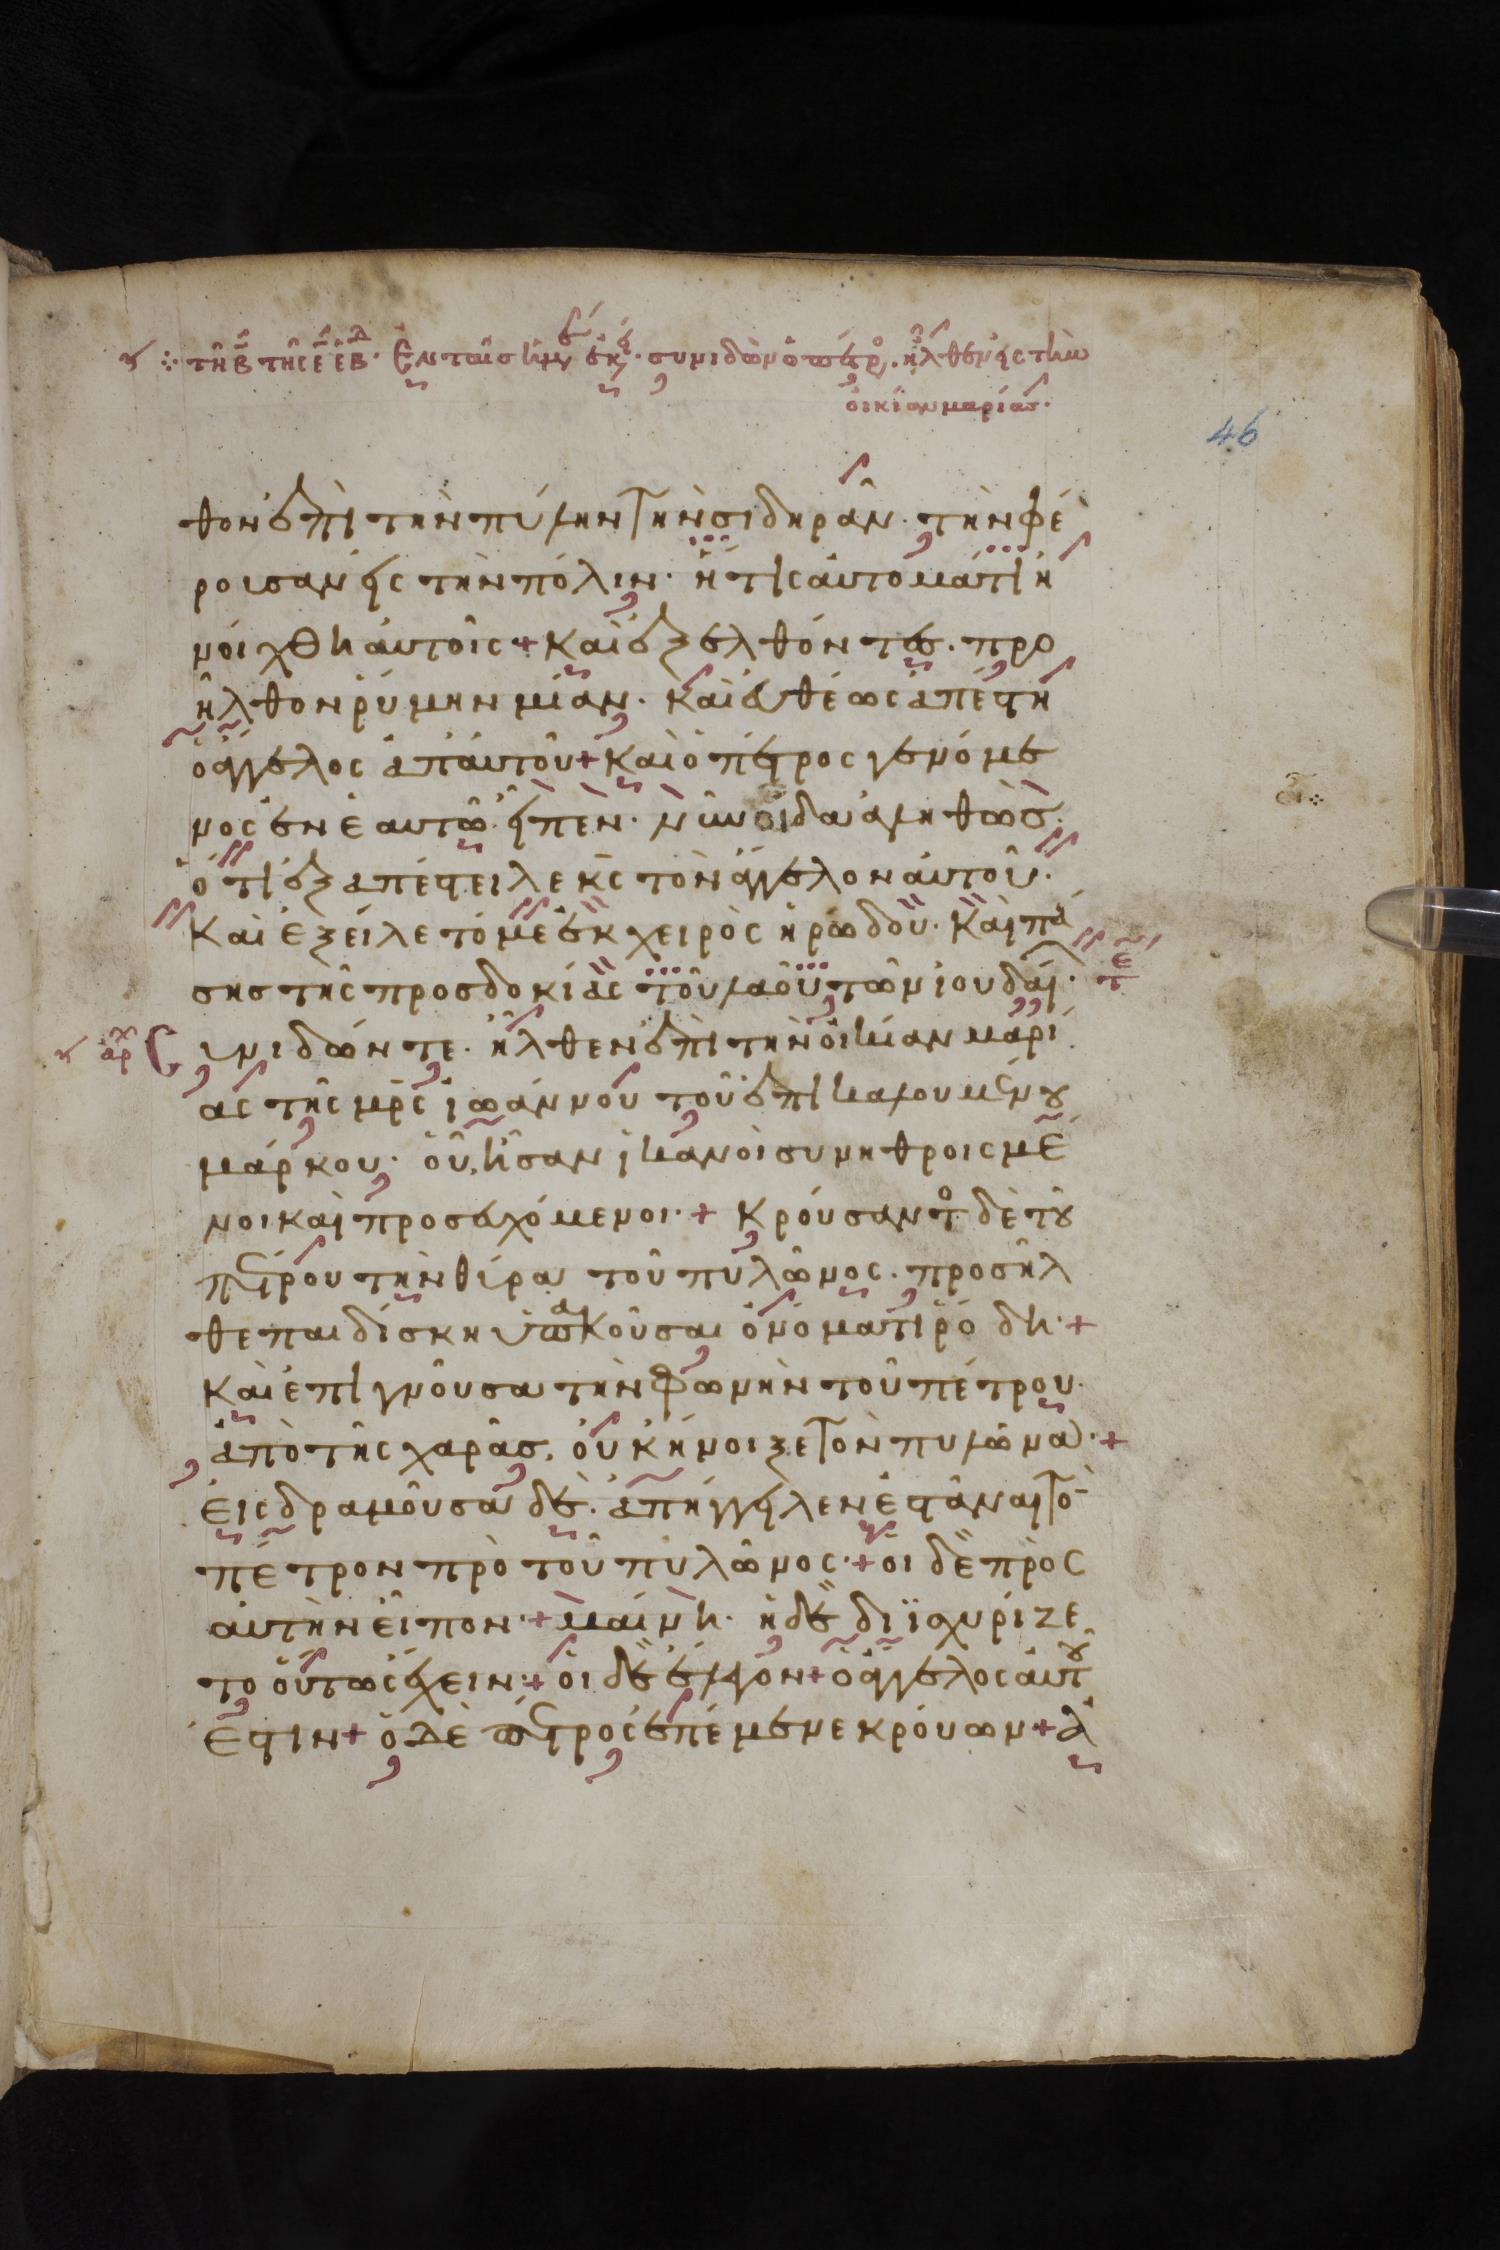 τῆ β τῆς ε ἑβδ· Ἐν ταῖς ἡμέραις ἐκείναις· συνιδὼν ὁ πέτρος· ἦλθεν εἰς τὴν
οἰκίαν μαρίας·
46
θον ἐπὶ τὴν πύλην τὴν σιδηρᾶν· τὴν φέ
ρουσαν εἰς τὴν πόλιν· ἥτις αὐτομάτη ἠ
νοίχθη αὐτοῖς + καὶ ἐξελθόντες· προ
ῆλθον ῥύμην μίαν· καὶ εὐθέως ἀπέστη
ὁ ἄγγελος ἀπ' αὐτοῦ + καὶ ὁ πέτρος γενόμε
νος ἐν ἑαυτῶ· εἶπεν· νῦν οἶδα ἀληθῶς·
ὅτι ἐξαπέστειλε κς τὸν ἄγγελον αὐτοῦ·
καὶ ἐξείλετό με ἐκ χειρὸς ἡρώδου· καὶ πά
σης τῆς προσδοκίας τοῦ λαοῦ τῶν ἰουδαί·
τε
αρχ Συνιδών τε· ἦλθεν ἐπὶ τὴν οἰκίαν μαρί
ας τῆς μρς ἰωάννου τοῦ ἐπικαλουμένου
μάρκου· οὗ ἦσαν ἱκανοὶ συνηθροισμέ
νοι καὶ προσευχόμενοι· + κρούσαντο δὲ τοῦ
πέτρου τὴν θύραν τοῦ πυλῶνος· προσῆλ
θε παιδίσκη ὑπακοῦσαι ὀνόματι ῥόδη· +
καὶ ἐπιγνοῦσα τὴν φωνὴν τοῦ πέτρου·
ἀπὸ τῆς χαρᾶς, οὐκ ἤνοιξε τὸν πυλῶνα· +
εἰσδραμοῦσα δὲ· ἀπήγγειλεν ἑστάναι τὸ
πέτρον πρὸ τοῦ πυλῶνος· + οἱ δὲ πρὸς
αὐτὴν εἶπον· + μαίνη· ἡ δὲ διϊσχυρίζε
το οὕτως ἔχειν· + οἱ δὲ ἔλεγον + ὁ ἄγγελος αὐτοῦ
ἐστιν + ὁ δὲ πέτρος ἐπέμενε κρούων + ἀ